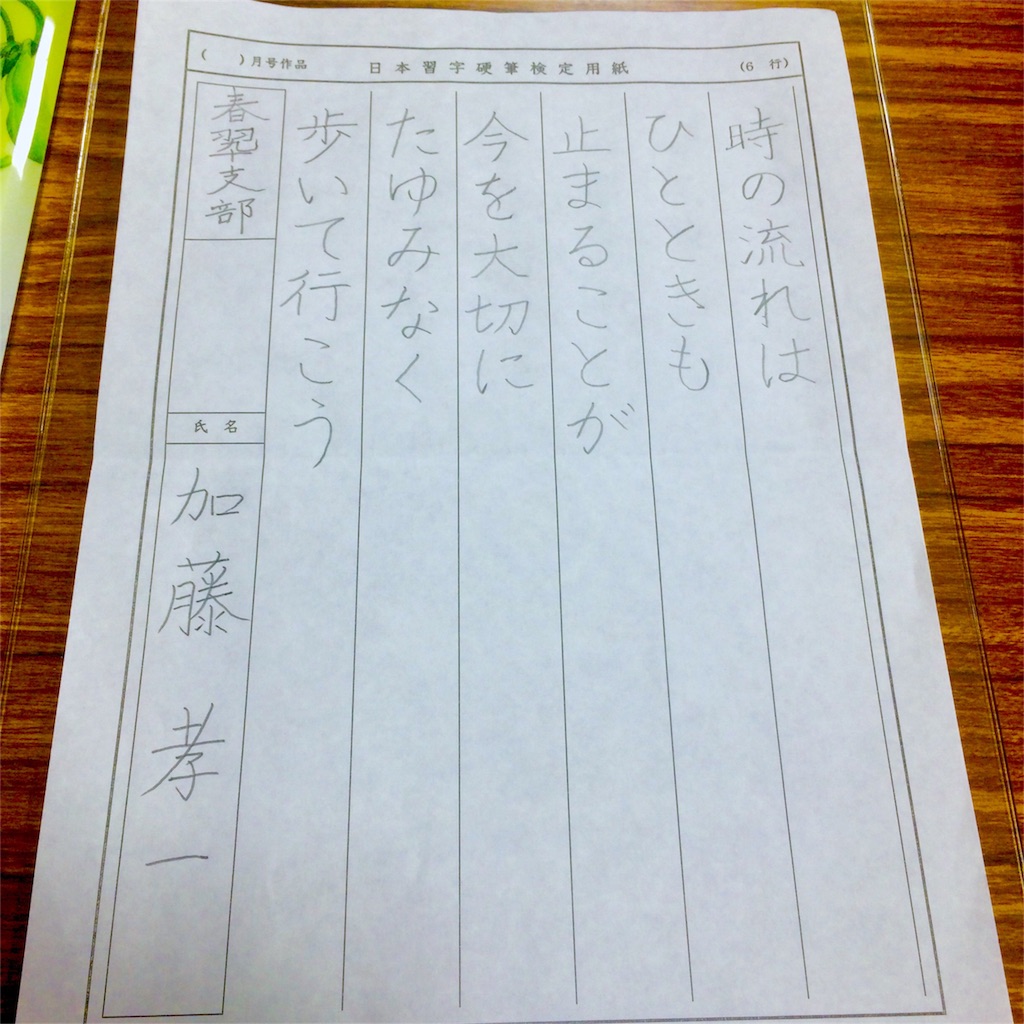 ( )月号作品 日本習字硬筆検定用紙 (6 行)
時の流れは
ひとときも
止まることが
今を大切に
たゆみなく
歩いて行こう
春翠支部
氏名
加藤孝一